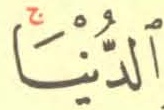 ٱلدُّنْيَاۚ